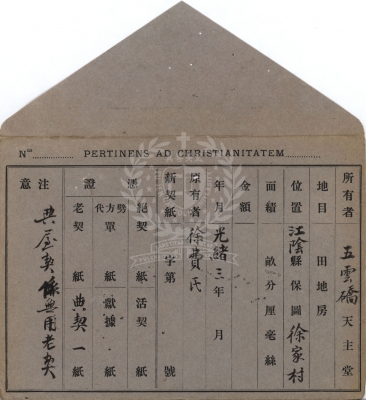 Nᵒˢ PERTINENS AD CHRISTIANITATEM
所有者 五雲礄天主堂
地目 田地房
位置 江陰縣保圖徐家村
面績 畝分厘毫絲
金額
年月 光緒三年 月
原有者 徐費氏
新契紙 字第 號
憑證
絕契 紙 活契 紙
劈方代單 紙 獻據 紙
老契 紙 典契一紙
注意 典屋契係無用老契